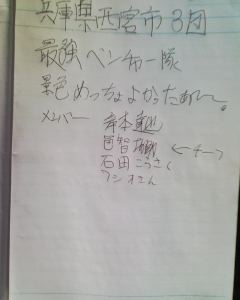 兵庫県西宮市3団
最強ベンチャー隊
景色めっちょよかったあ〜。
メンバー 岸本
邑智 ←チーフ
石田こうさく
ワシオさん